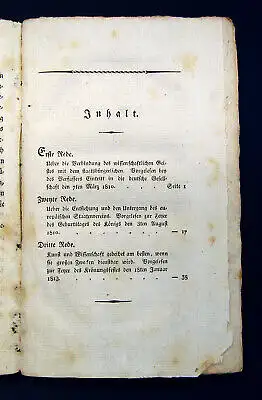 Inhalt.
Erste Rede.
Ueber die Verbindung des wissenschaftlichen Gei-
stes mit dem staatsbürgerlichen. Vorgelesen bey
des Verfassers Eintritt in die deutsche Gesell-
schaft den 7ten März 1810. . . Seite 1
Zweyte Rede.
Ueber die Entstehung und den Untergang des eu-
ropäischen Staatenvereins. Vorgelesen zur Feyer
des Geburtstages des Königs den 3ten August
1810. . . . . . — 17
Dritte Rede.
Kunst und Wissenschaft gedeihet am besten, wenn
sie großen Zwecken dienstbar wird. Vorgelesen
zur Feyer des Krönungsfestes den 18ten Januar
1813. . . . . . — 38